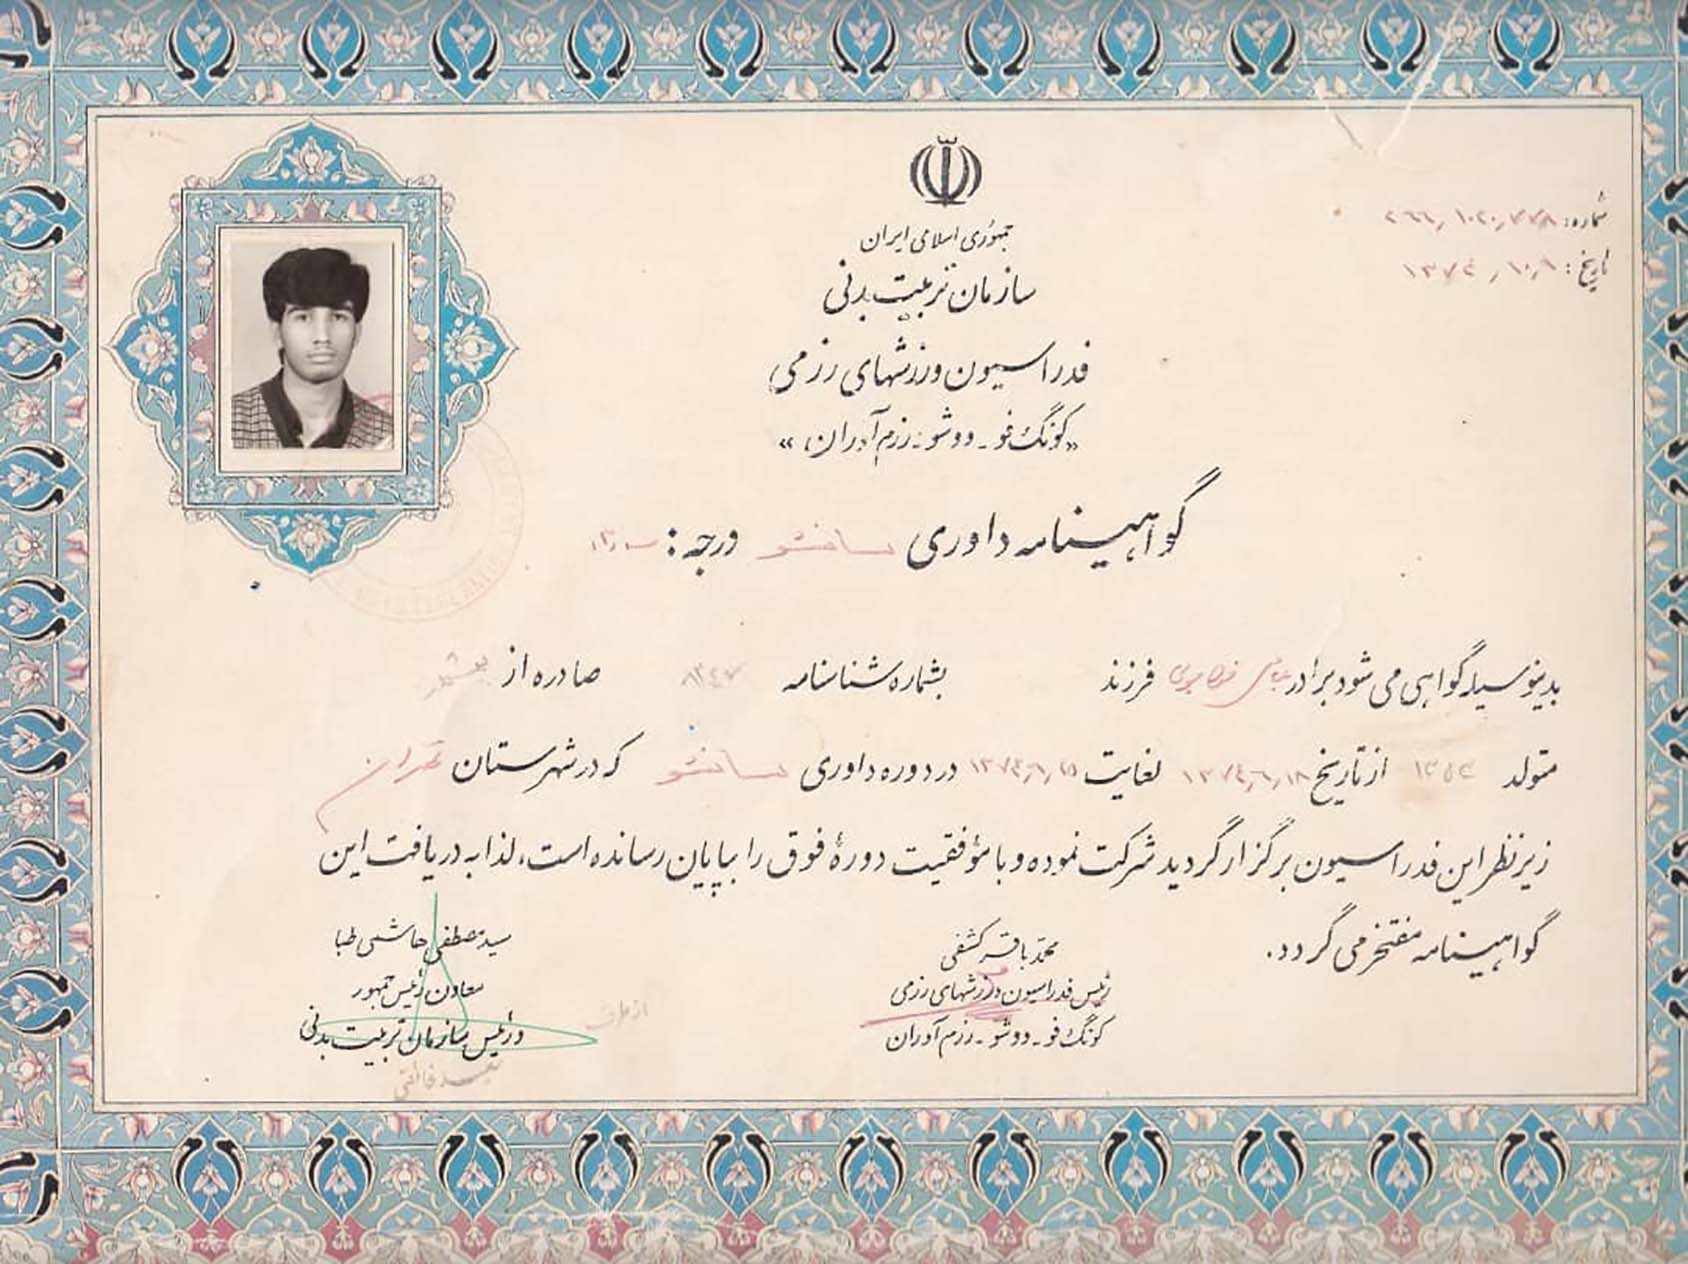 شماره: ۲۶۶٫۱۰۲۰٫۷۷۸
تاریخ: ۱۳۷۴٫۱۰٫۱
جمهوری اسلامی ایران
سازمان تربیت بدنی
فدراسیون ورزشهای رزمی
«کونگ فو ـ ووشو ـ رزم آوران»
گواهینامه داوری سانشو درجه:
بدینوسیله گواهی می شود برادر فرزند بشماره شناسنامه صادره از
متولد از تاریخ ۱۳۷۴٫۶٫۱۸ لغایت ۱۳۷۴٫۶٫۲۵ در دوره داوری سانشو که در شهرستان تهران
زیر نظر این فدراسیون برگزار گردید شرکت نموده و با موفقیت دورهٔ فوق را بپایان رسانده است، لذا به دریافت این
گواهینامه مفتخر می گردد.
محمد باقر کشفی
رئیس فدراسیون ورزشهای رزمی
کونگ فو ـ ووشو ـ رزم آوران
سید مصطفی هاشمی طبا
معاون رئیس جمهور
و رئیس سازمان تربیت بدنی
از طرف